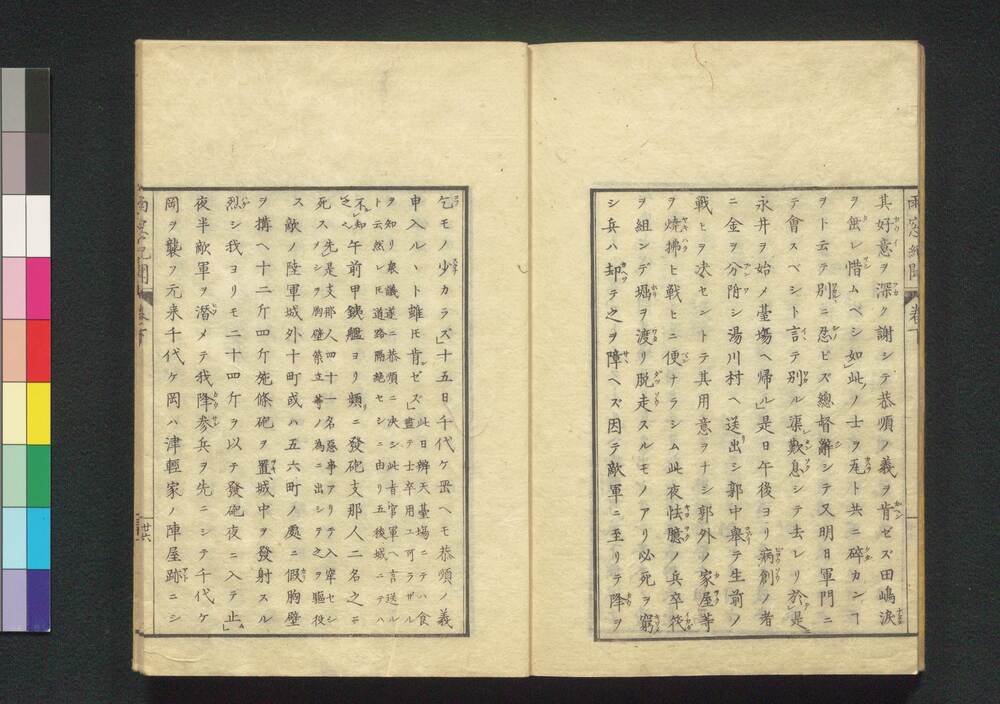 其好意ヲ深ク謝シテ恭順ノ義ヲ肯ゼズ田嶋涙
ヲ無レ惜ムベシ如此ノ士ヲ瓦ト共ニ碎カンヿ
ヲト云テ別ニ忍ビズ總督辭シテ又明日軍門ニ
テ會スベシト言テ別ル渠歎息シテ去レリ於是
永井ヲ始メ臺場ヘ帰ル」是日午後ヨリ病創ノ者
ニ金ヲ分附シ湯川村ヘ送出シ郭中擧テ生前ノ
戰ヒヲ求セントテ其用意ヲナシ郭外ノ家屋等
ヲ燒拂ヒ戰ヒニ便ナラシム此夜怯臆ノ兵卒筏
ヲ組ンデ堀ヲ渡リ脱走スルモノアリ必死ヲ窮
シ兵ハ却テ之ヲ障ヘズ因テ敵軍ニ至リテ降ヲ
乞モノ少カラズ」十五日千代ケ岡ヘモ恭順ノ義
申入ルヽト雖モ肯ゼズ 此日辨天臺場ニテハ食盡テ士卒用ユ可ラザル
ヲ知リ衆議遂ニ恭順ニ決シ此旨官軍ヘ言送ル
ト云然レ𪜈道路隔絶セシニ由リ五後城ニテハ
不知之 午前甲鉄艦ヨリ頻ニ發砲支那人二名之ニ
死ス 先是支那人四十一名惡事アリテ入牢セシヲ出シテ之ヲ驅役
敵ノ陸軍城外十町或ハ五六町ノ處ニ假胸壁
ヲ搆ヘ十二斤四斤施條砲ヲ置城中ヲ發射スル
烈シ我ヨリモ二十四斤ヲ以テ發砲夜ニ入テ止」
夜半敵軍ヲ潜メテ我降参兵ヲ先ニシテ千代ケ
岡ヲ襲フ元来千代ケ岡ハ津輕家ノ陣屋跡ニシ